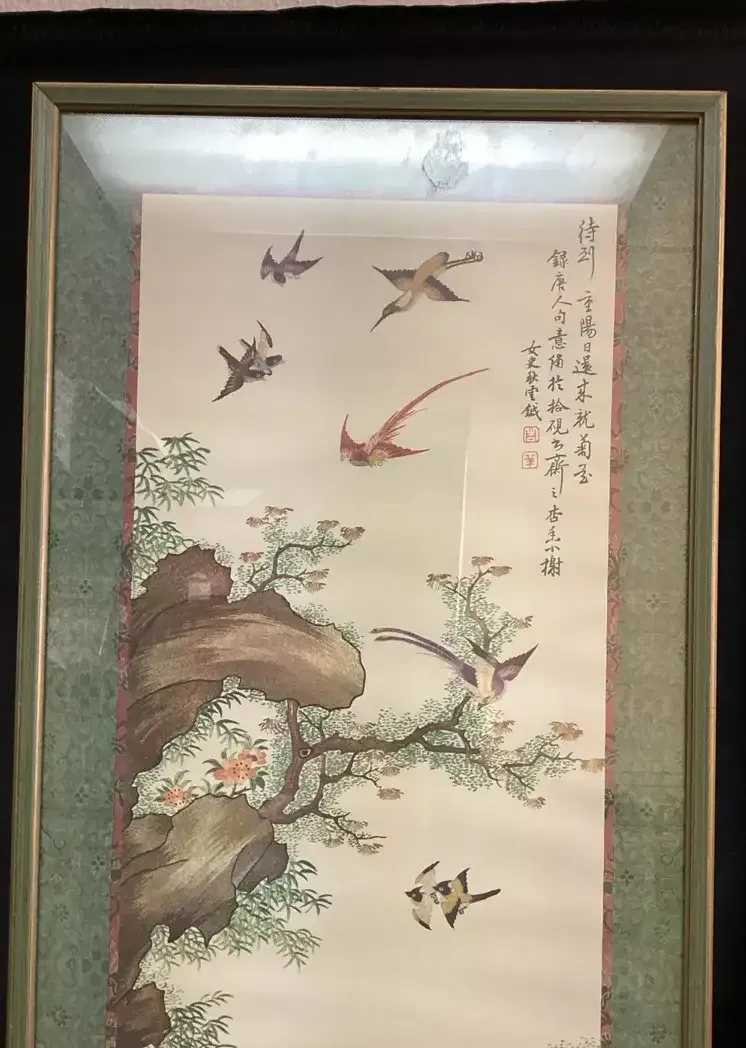 待到重陽日還來就菊花
錄唐人句意繡於拾硯書齋之杏雨小榭
女史秋雲鍼